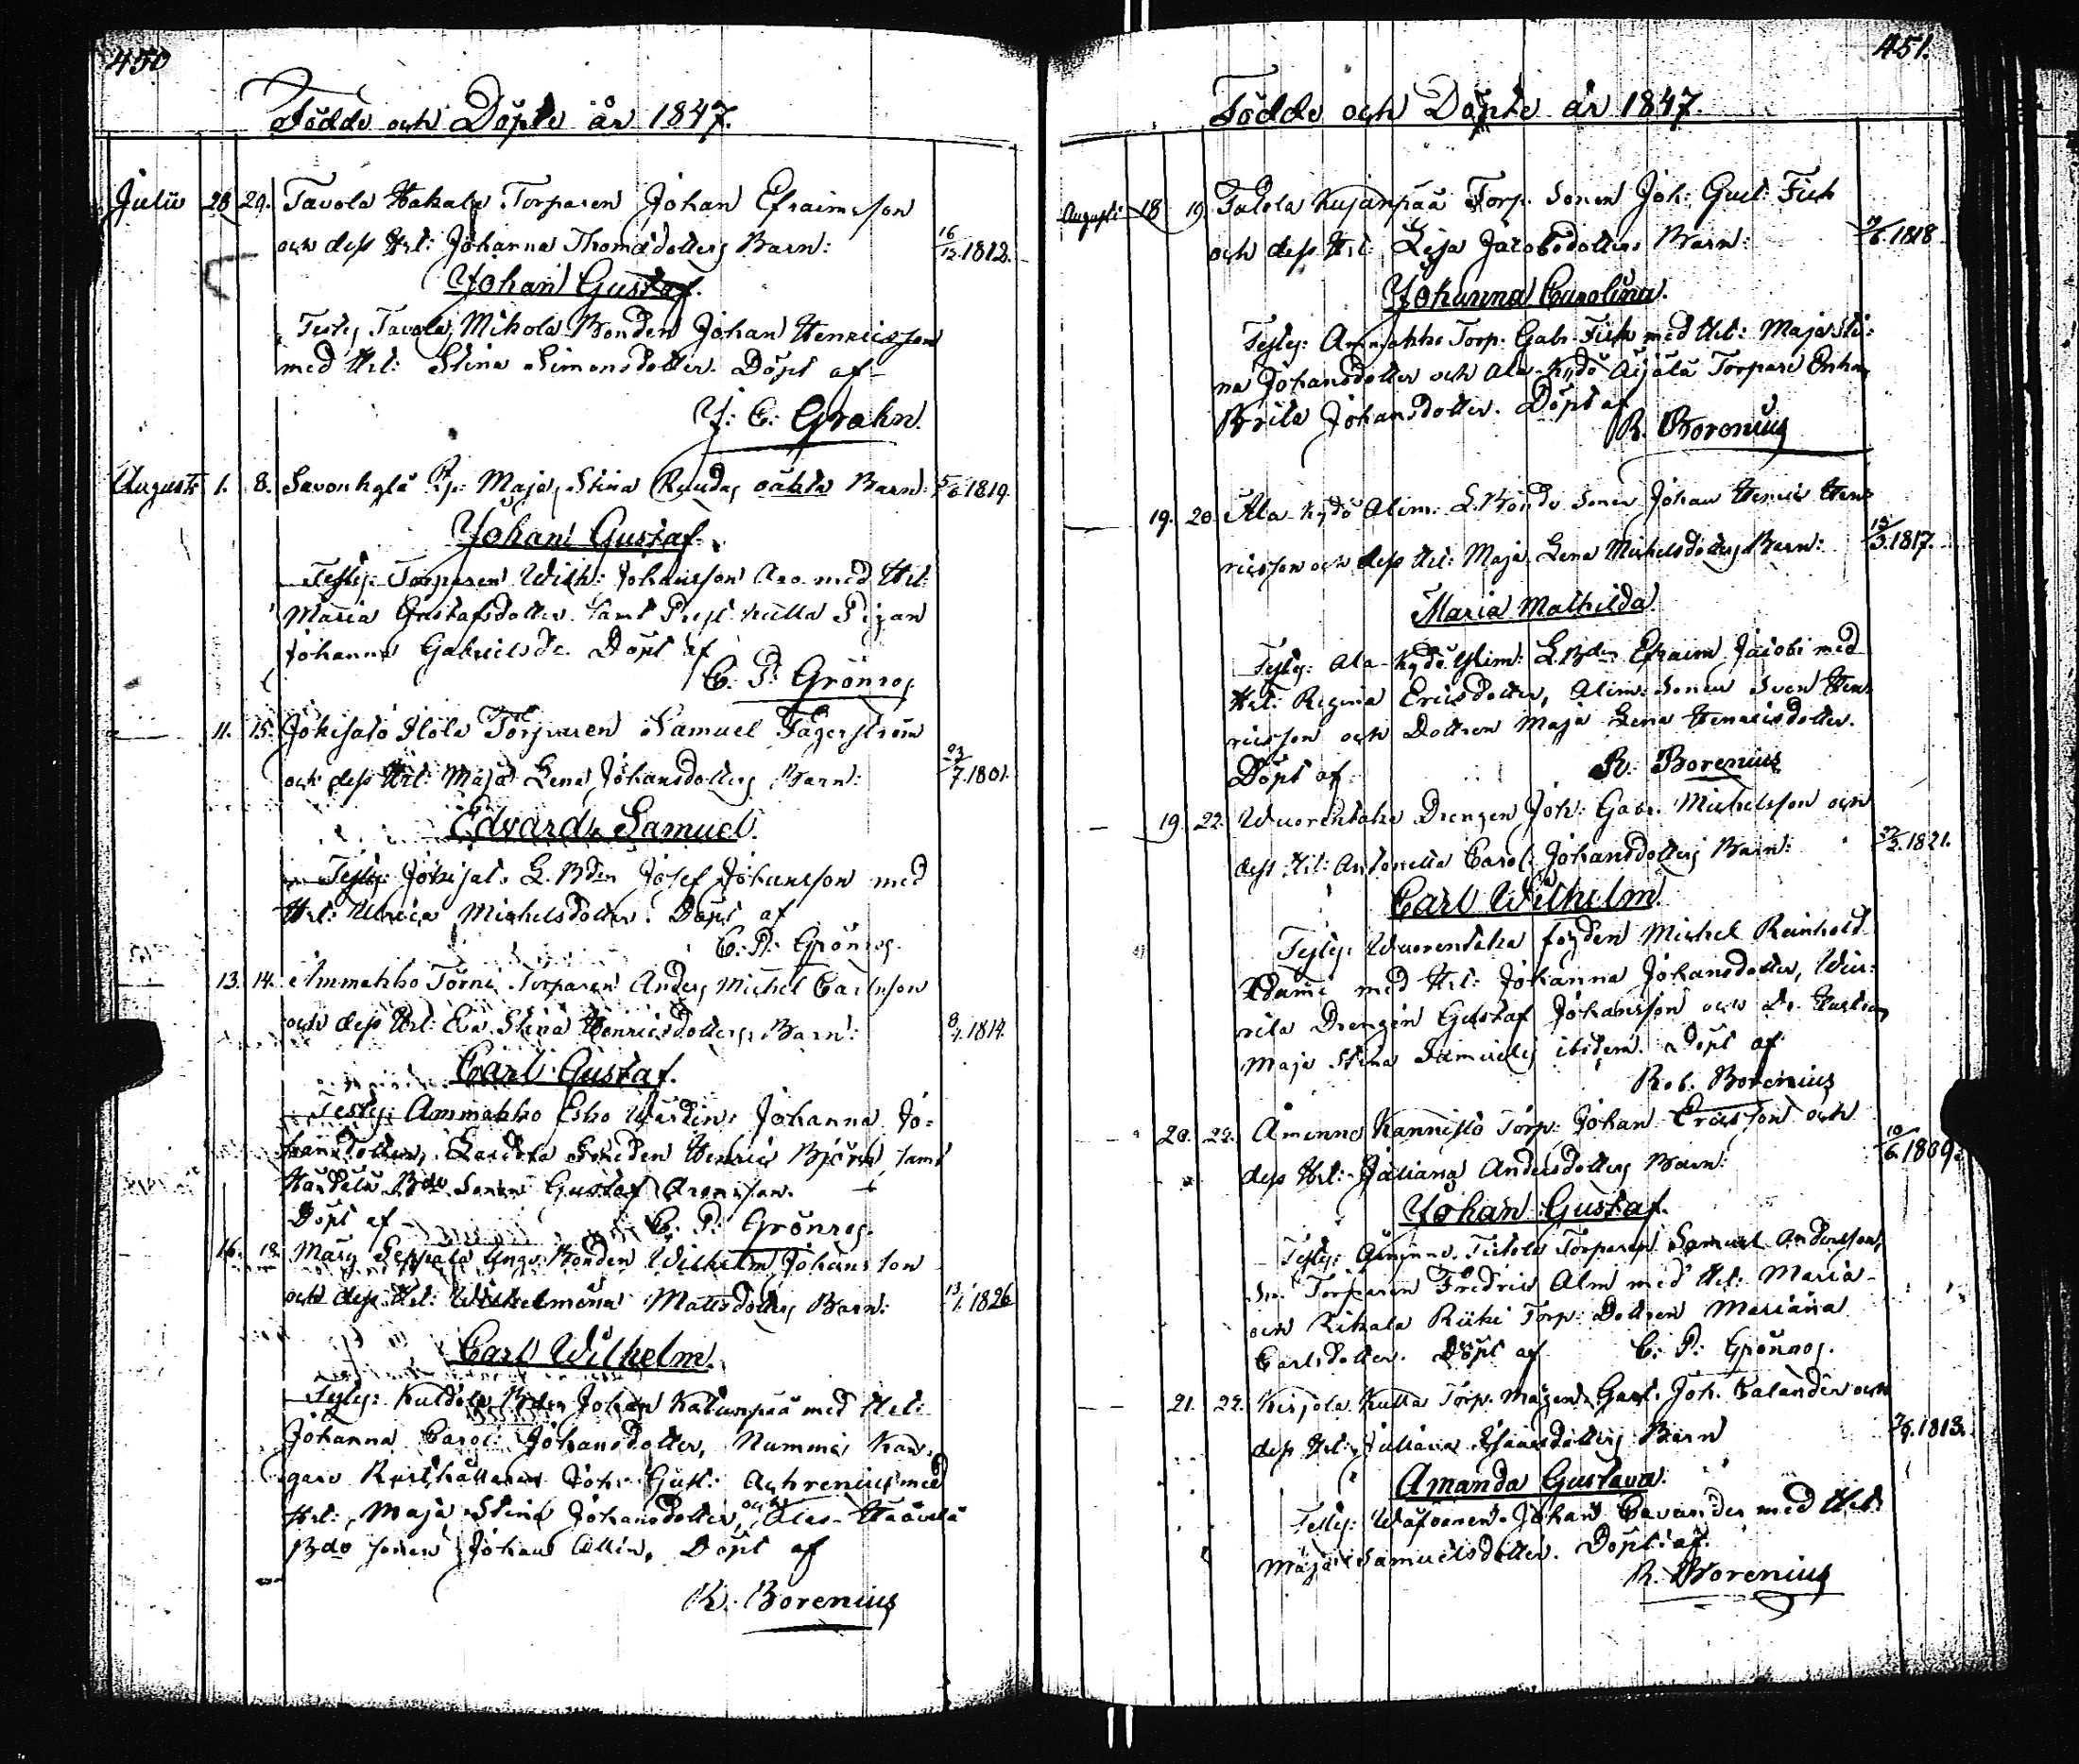 450
Födde och Döpte år 1847.
Julii 28 29. Tavola Hakala Torparen Johan Efraimsson
och dess Hst: Johanna Thomædotters Barn: 16/12.1812.
Johan Gustaf.
Testes Tavola Mikola Bonden Johan Henricsson
med Hst: Stina Simonsdotter. Döpt af
J: E: Grahn.
Augusti 1. 8. Savonkylä Maja Stina oäkta Barn: 5/6.1819.
Johan Gustaf.
Testes: Torparen Wilh: Johansson Aro med Hst:
Maria Gustafsdotter Samt Pigan
Johanna Gabrielsdr. Döpt af
C. P. Grönros.
11. 15. Jokisalo Ilola Torparen Samuel Fagerström
och dess Hst: Maja Lena Johansdotters Barn: 23/7.1801.
Edvard Samuel.
Testes: Jokisalo L. Bden Josef Johansson med
Hst: Ulrica Michelsdotter. Döpt af
C. P. Grönros.
13. 14. Ammakko Törni Torparen Anders Michel Carlsson
och dess Hst: Eva Stina Henricsdotters Barn: 1814.
Carl Gustaf.
Testes: Ammakko Esko Johanna Jo-
hansdotter, Henric Björn, samt
Bde Sonen Gustaf Aronsson.
Döpt af C. P. Grönros.
16. 18. Märy Seppälä Unge Bonden Wilhelm Johansson
och dess Hst: Wilhelmina Mattsdotters Barn: 13/1.1826
Carl Wilhelm.
Testes: Kuldola Bden Johan med Hst:
Johanna Carol: Johansdotter, Nummis Kan-
gare Rusthållaren Joh: Gust: Achrenius med
Hst: Maja Stina Johansdotter, och Alas-Haavila
Bde sonen Johan Allin. Döpt af
R. Borenius
451.
Födde och Döpte år 1847.
Augusti 18 19. Talola Kujanpää Torp. Sonen Joh: Gust: Fisk
och dess Hst: Lisa Jacobsdotters Barn: 1818
Johanna Carolina.
Testes: Ammakko Torp. Gabr. Fisk med Hst: Maja Sti-
na Johansdotter och Ala-Kydö Äijälä Torpare Enkan
Brita Johansdotter. Döpt af
R. Borenius
19. 20. Ala Kydö Alim. L. Bonde Sonen Johan Henric Hen-
ricsson och dess Hst: Maja Lena Michelsdotters Barn: 1817.
Maria Mathilda.
Testes: Ala-Kydö Alim: L. Bden Efraim Jacobs med
Hst: Regina Ericsdotter, Alim. Sonen Sven Hen-
ricsson och Dottren Maja Lena Henricsdotter.
Döpt af R. Borenius
19. 22. Wuorentaka Drengen Joh: Gabr. Michelsson och
dess Hst: Antonetta Carol: Johansdotters Barn: 1821.
Carl Wilhelm.
Testes: Wuorentaka fogden Michel Reinhold
Adami med Hst: Johanna Johansdotter, Wiu-
rila Drengen Gustaf Johansson och Dr. Hustrun
Maja Stina Samuels ibidem. Döpt af
Rob. Borenius
20. 22. Åminne Kannisto Torp: Johan Ericsson och
dess Hst: Juliana Andersdotters Barn: 10/6.1809.
Johan Gustaf.
Testes: Åminne Torparen Samuel Andersson,
Torparen Fredric Alm med Hst: Maria
och Rikala Riiki Torp: Dottren Mariana
Carlsdotter. Döpt af C. P. Grönros.
21. 22. Kirjola Kulla Torp. Mågen Gust. Joh. Calander och
dess Hst: Juliana Barn 1813.
Amanda Gustava.
Testes: Johan Cavander med Hst:
Maja Samuelsdotter. Döpt af
R. Borenius